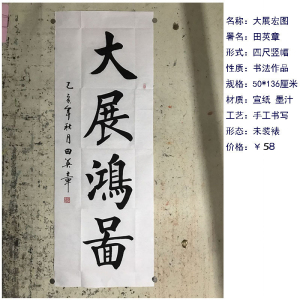 大
展
鴻
圖
乙亥年秋月田英章
名称：大展宏图
署名：田英章
形式：四尺竖幅
性质：书法作品
规格：50*136厘米
材质：宣纸 墨汁
工艺：手工书写
形态：未装裱
价格：￥58